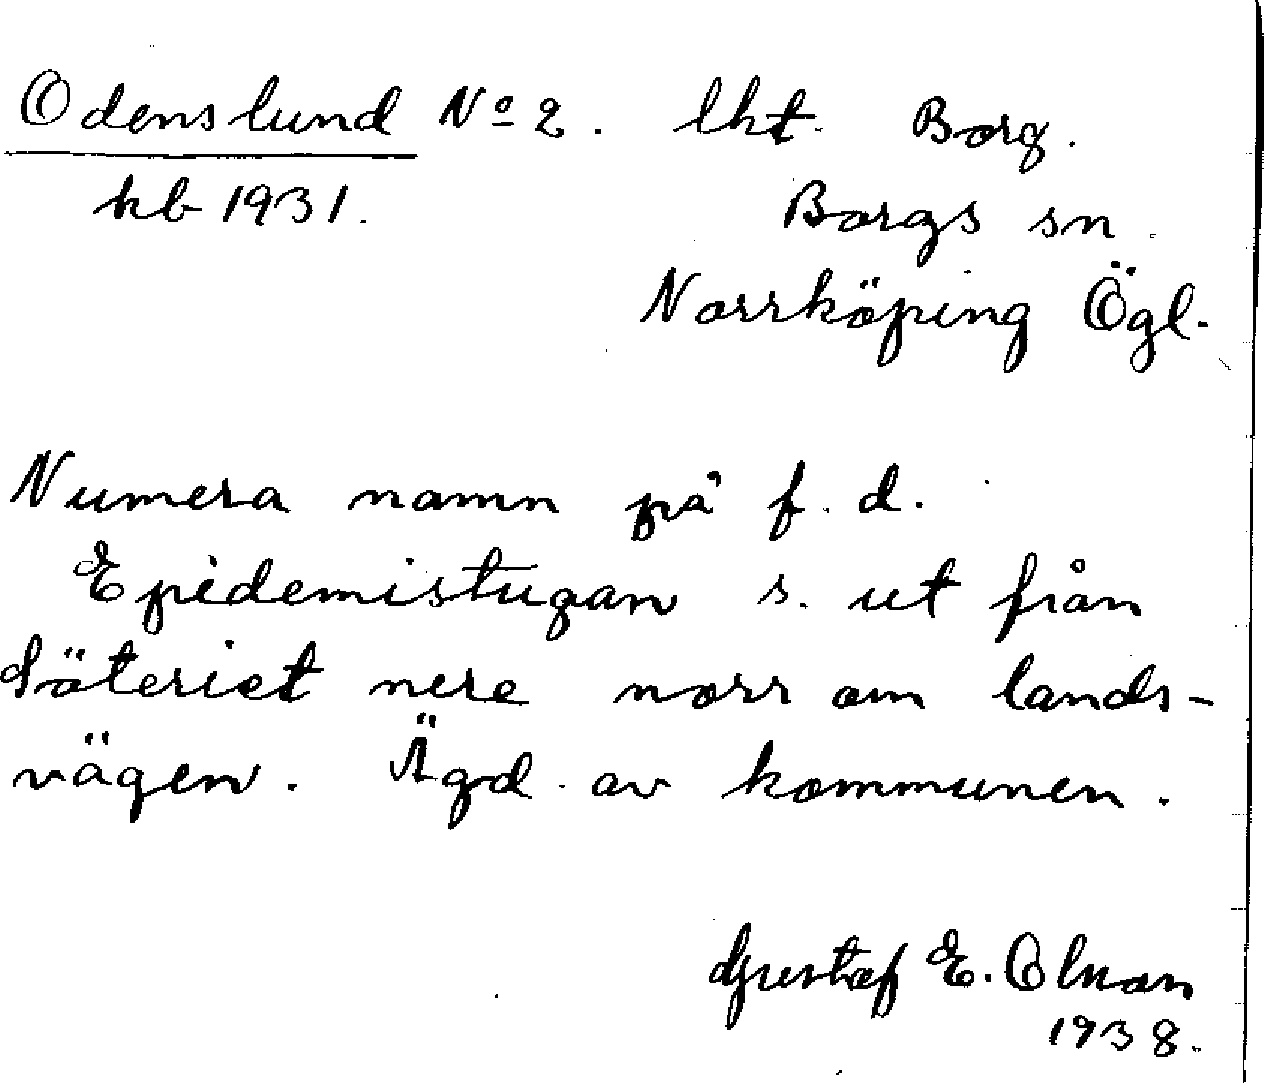 Odenslund No 2. lht. Borg.
hb 1931. Borgs sn.
Norrköping Ögl.
Numera namn på f. d.
Epidemistugan s. ut från
Säteriet nere norr om lands-
vägen. Ägd. av kommunen.
Gustaf E. Olson
1938.